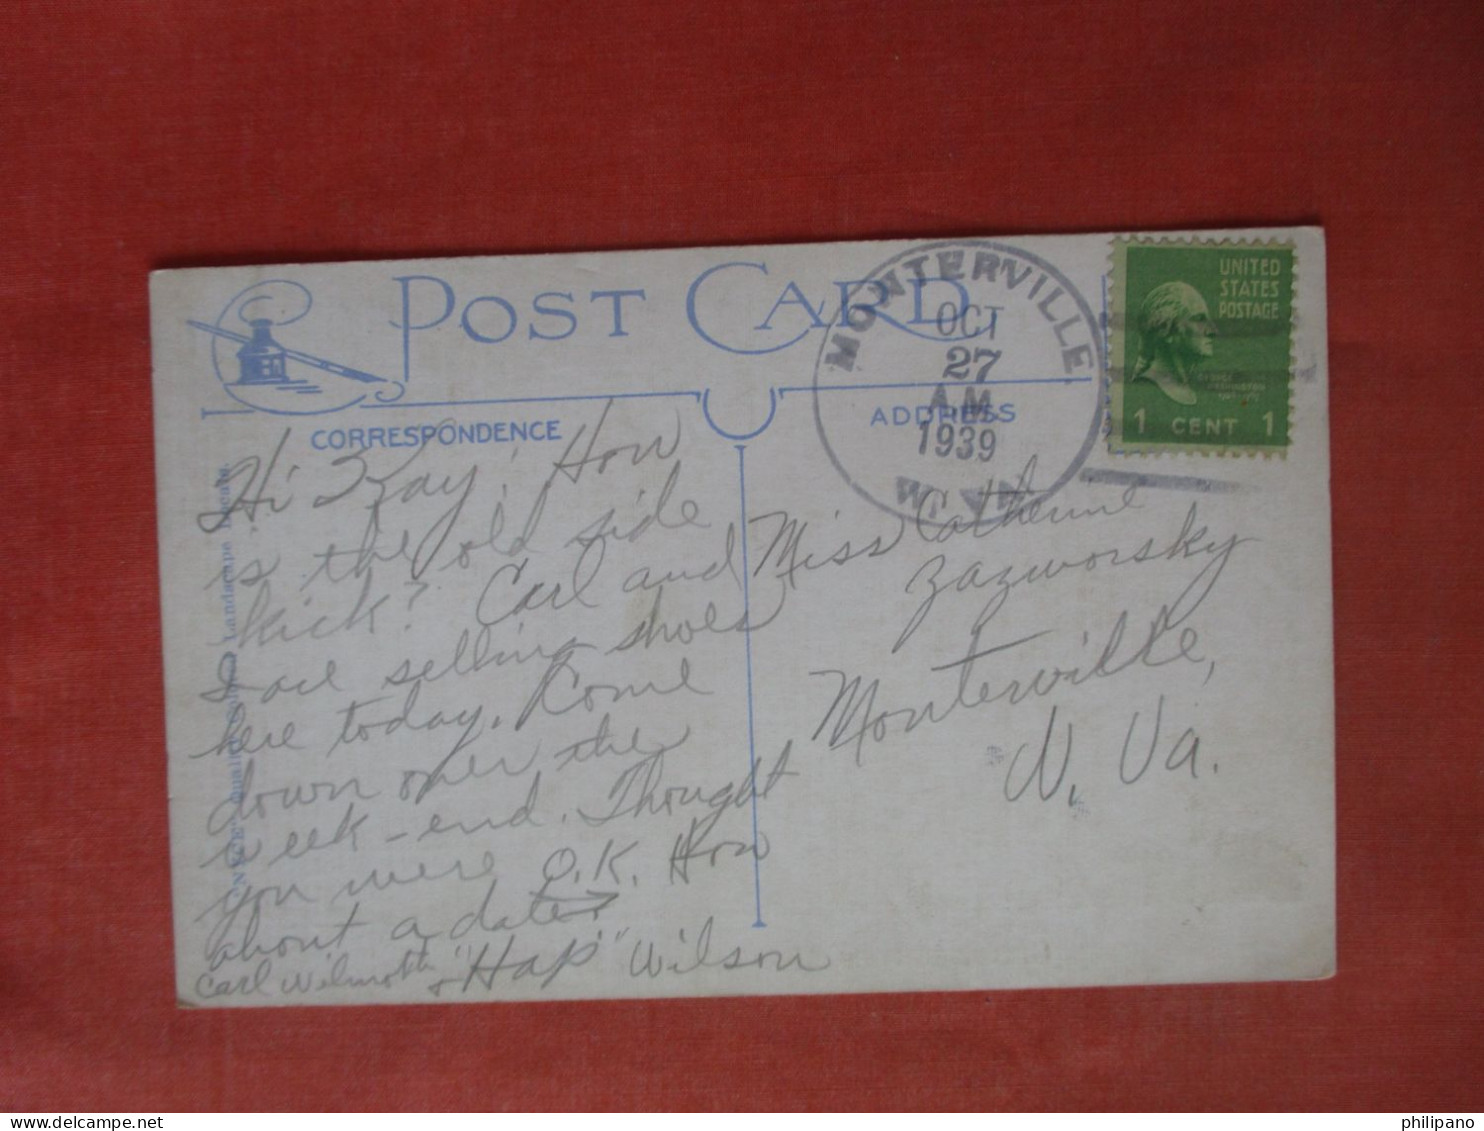 POST CARD
CORRESPONDENCE
ADDRESS
MONTERVILLE
OCT
27
A.M.
1939
W. VA.
UNITED
STATES
POSTAGE
1 CENT 1
Hi Kay! How
is the old side
kick? Carl and
I are selling shoes
here today. Come
down over the
week-end. Thought
you were O.K. How
about a date?
Carl Wilmoth & "Hap" Wilson
Miss Catherine
Zazworsky
Monterville,
W. Va.
Landscape
philipano